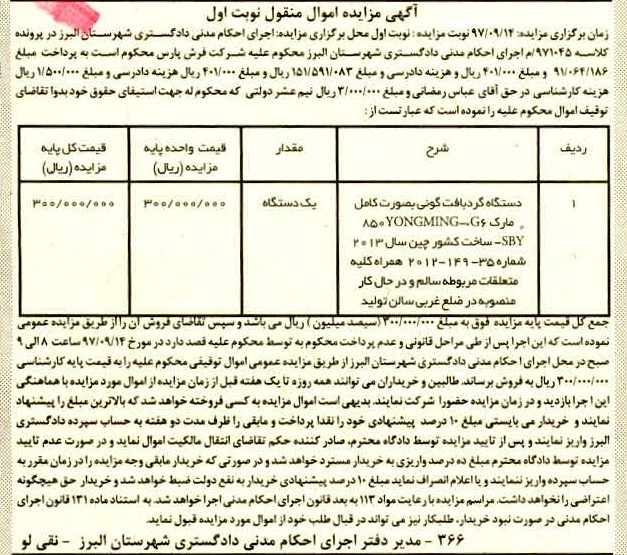 آگهی مزایده اموال منقول نوبت اول
زمان برگزاری مزایده: ۹۷/۰۹/۱۴ نوبت مزایده: نوبت اول محل برگزاری مزایده: اجرای احکام مدنی دادگستری شهرستان البرز در پرونده
کلاسه ۹۷۱۰۴۵/م اجرای احکام مدنی دادگستری شهرستان البرز محکوم علیه شرکت فرش پارس محکوم است به پرداخت مبلغ
۹۱/۰۶۴/۱۸۶ و مبلغ ۴۰۱/۰۰۰ ریال و هزینه دادرسی و مبلغ ۱۵۱/۵۹۱/۰۸۳ ریال و مبلغ ۴۰۱/۰۰۰ ریال هزینه دادرسی و مبلغ ۱/۵۰۰/۰۰۰ ریال
هزینه کارشناسی در حق آقای عباس رمضانی و مبلغ ۳/۰۰۰/۰۰۰ ریال نیم عشر دولتی که محکوم له جهت استیفای حقوق خود بدوا تقاضای
توقیف اموال محکوم علیه را نموده است که عبارتست از:
ردیف شرح مقدار قیمت واحده پایه مزایده (ریال) قیمت کل پایه مزایده (ریال)
۱ دستگاه گردبافت گونی بصورت کامل یک دستگاه ۳۰۰/۰۰۰/۰۰۰ ۳۰۰/۰۰۰/۰۰۰
مارک ۸۵۰YONGMING-۰G۶
SBY- ساخت کشور چین سال ۲۰۱۳
شماره ۳۵-۱۴۹-۲۰۱۲ همراه کلیه
متعلقات مربوطه سالم و در حال کار
منصوبه در ضلع غربی سالن تولید
جمع کل قیمت پایه مزایده فوق به مبلغ ۳۰۰/۰۰۰/۰۰۰ (سیصد میلیون) ریال می باشد و سپس تقاضای فروش آن را از طریق مزایده عمومی
نموده است که این اجرا پس از طی مراحل قانونی و عدم پرداخت محکوم به توسط محکوم علیه قصد دارد در مورخ ۹۷/۰۹/۱۴ ساعت ۸ الی ۹
صبح در محل اجرای احکام مدنی دادگستری شهرستان البرز از طریق مزایده عمومی اموال توقیفی محکوم علیه را به قیمت پایه کارشناسی
۳۰۰/۰۰۰/۰۰۰ ریال به فروش برساند. طالبین و خریداران می توانند همه روزه تا یک هفته قبل از زمان مزایده از اموال مورد مزایده با هماهنگی
این اجرا بازدید و در زمان مزایده حضورا شرکت نمایند. بدیهی است اموال مزایده به کسی فروخته خواهد شد که بالاترین مبلغ را پیشنهاد
نمایند و خریدار می بایستی مبلغ ۱۰ درصد پیشنهادی خود را نقدا پرداخت و مابقی را ظرف مدت دو هفته به حساب سپرده دادگستری
البرز واریز نمایند و پس از تایید مزایده توسط دادگاه محترم، صادر کننده حکم تقاضای انتقال مالکیت اموال نماید و در صورت عدم تایید
مزایده توسط دادگاه محترم مبلغ ده درصد واریزی به خریدار مسترد خواهد شد و در صورتی که خریدار مابقی وجه مزایده را در زمان مقرر به
حساب سپرده واریز ننمایند و یا اعلام انصراف نماید مبلغ ۱۰ درصد پیشنهادی خریدار به نفع دولت ضبط خواهد شد و خریدار حق هیچگونه
اعتراضی را نخواهد داشت. مراسم مزایده با رعایت مواد ۱۱۳ به بعد قانون اجرای احکام مدنی اجرا خواهد شد. به استناد ماده ۱۳۱ قانون اجرای
احکام مدنی در صورت نبود خریدار، طلبکار نیز می تواند در قبال طلب خود از اموال مورد مزایده قبول نماید.
۳۶۶ - مدیر دفتر اجرای احکام مدنی دادگستری شهرستان البرز - نقی لو